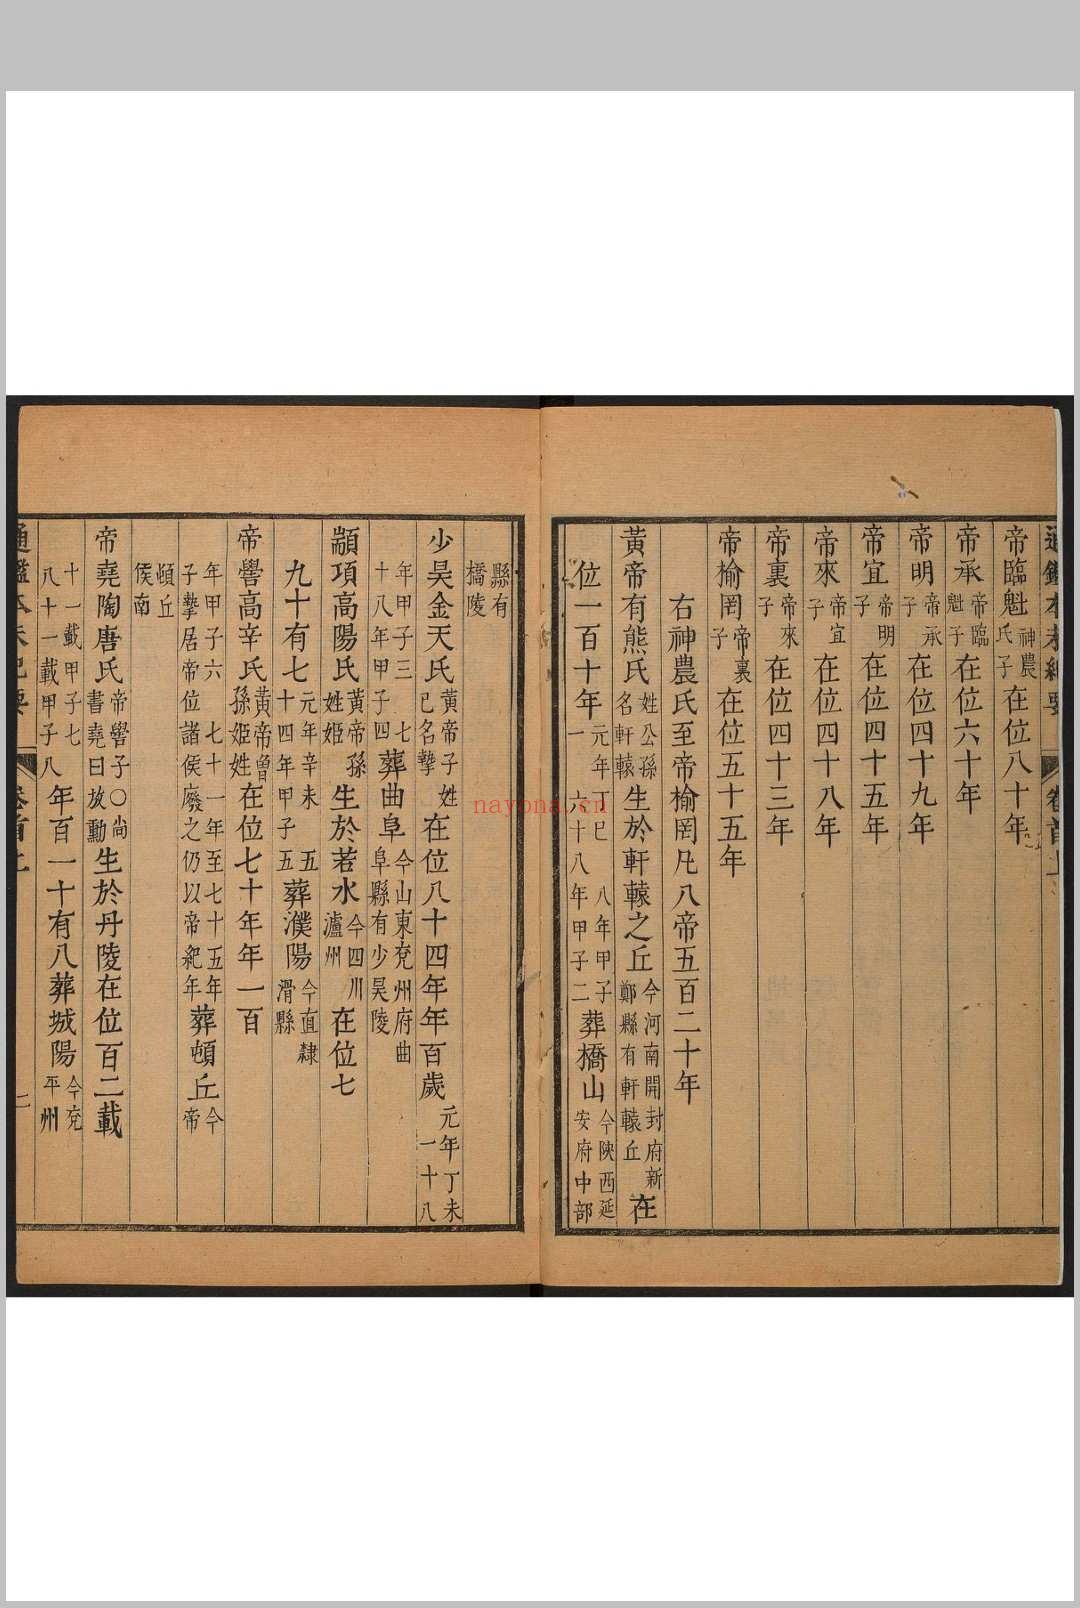 通鑑本末紀要 卷首上
帝臨魁神農氏子在位八十年
帝承帝臨魁子在位六十年
帝明帝承子在位四十九年
帝宜帝明子在位四十五年
帝來帝宜子在位四十八年
帝裏帝來子在位四十三年
帝榆罔帝裏子在位五十五年
右神農氏至帝榆罔凡八帝五百二十年
黃帝有熊氏姓公孫名軒轅生於軒轅之丘今河南開封府新鄭縣有軒轅丘在
位一百十年元年丁巳八年甲子一六十八年甲子二葬橋山今陝西延安府中部
縣有橋陵
少昊金天氏黃帝子姓已名摯在位八十四年年百歲元年丁未一十八
年甲子三七十八年甲子四葬曲阜今山東兗州府曲阜縣有少昊陵
顓項高陽氏黃帝孫姓姬生於若水今四川瀘州在位七
九十有七元年辛未五十四年甲子五葬濮陽今直隸滑縣
帝嚳高辛氏黃帝曾孫姬姓在位七十年年一百
年甲子六七十一年至七十五年子摯居帝位諸侯廢之仍以帝紀年葬頓丘今帝
頓丘侯南
帝堯陶唐氏帝嚳子○尚書堯曰放勳生於丹陵在位百二載
十一載甲子七八十一載甲子八年百一十有八葬城陽今兗平州
通鑑本末紀要 卷首上 二
nayona.cn